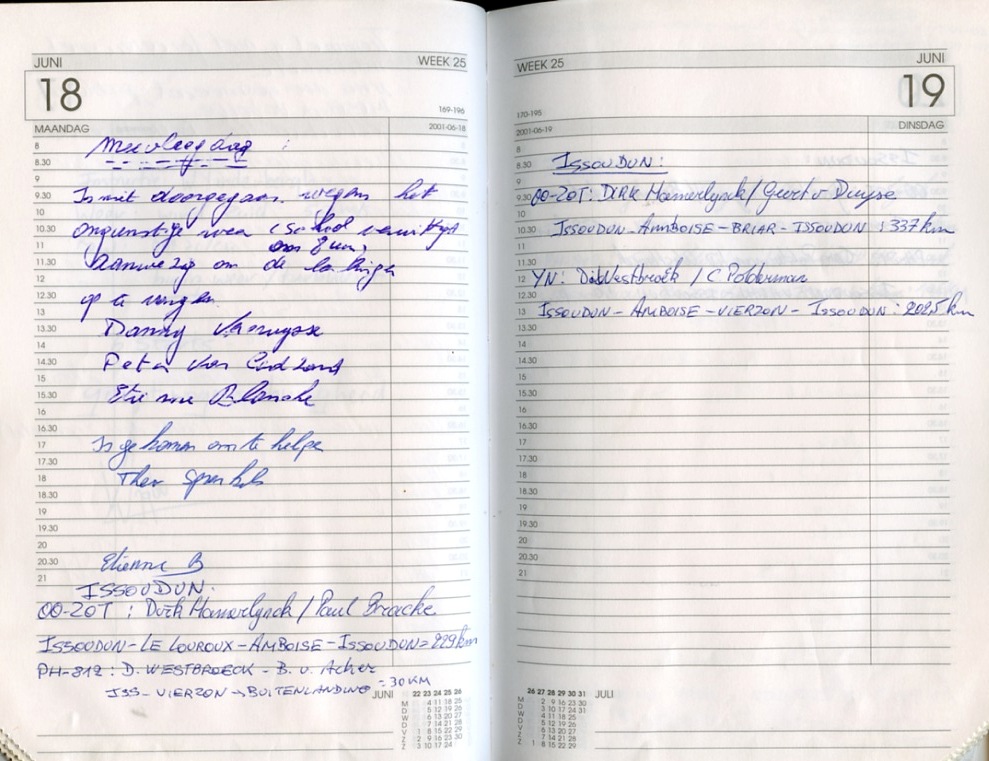 JUNI WEEK 25
18
169-196
MAANDAG 2001-06-18
8
8.30
9
Is niet doorgegaan wegens het
9.30
10
ongunstige weer (School verwittigd
10.30
om 8 uur)
11
Aanwezig om de
11.30
12
op te
12.30
13
Danny
13.30
14
Peter Van
14.30
15
Etienne Blanche
15.30
16
16.30
Is gekomen om te helpen
17
17.30
Theo
18
18.30
19
19.30
20
Etienne B
20.30
21
ISSOUDUN:
OO-ZOT: Dirk Hamerlynck / Paul Braecke
ISSOUDUN-LE LOUROUX-AMBOISE-ISSOUDUN= 229 km
PH-812: D. WESTBROECK - B. v. Acker
ISS- VIERZON → BUITENLANDING = 30 KM
JUNI 22 23 24 25 26
M 4 11 18 25
D 5 12 19 26
W 6 13 20 27
D 7 14 21 28
V 1 8 15 22 29
Z 2 9 16 23 30
Z 3 10 17 24
WEEK 25 JUNI
19
170-195
2001-06-19 DINSDAG
8
ISSOUDUN:
8.30
9
OO-ZOT: DIRK Hamerlynck / Geert v Duyse
9.30
10
ISSOUDUN-AMBOISE-BRIAR-ISSOUDUN: 337 km
10.30
11
11.30
YN: D. Westbroek / C Polderman
12
12.30
ISSOUDUN - AMBOISE - VIERZON - ISSOUDUN:
13
13.30
14
14.30
15
15.30
16
16.30
17
17.30
18
18.30
19
19.30
20
20.30
21
26 27 28 29 30 31 JULI
M 2 9 16 23 30
D 3 10 17 24 31
W 4 11 18 25
D 5 12 19 26
V 6 13 20 27
Z 7 14 21 28
Z 1 8 15 22 29